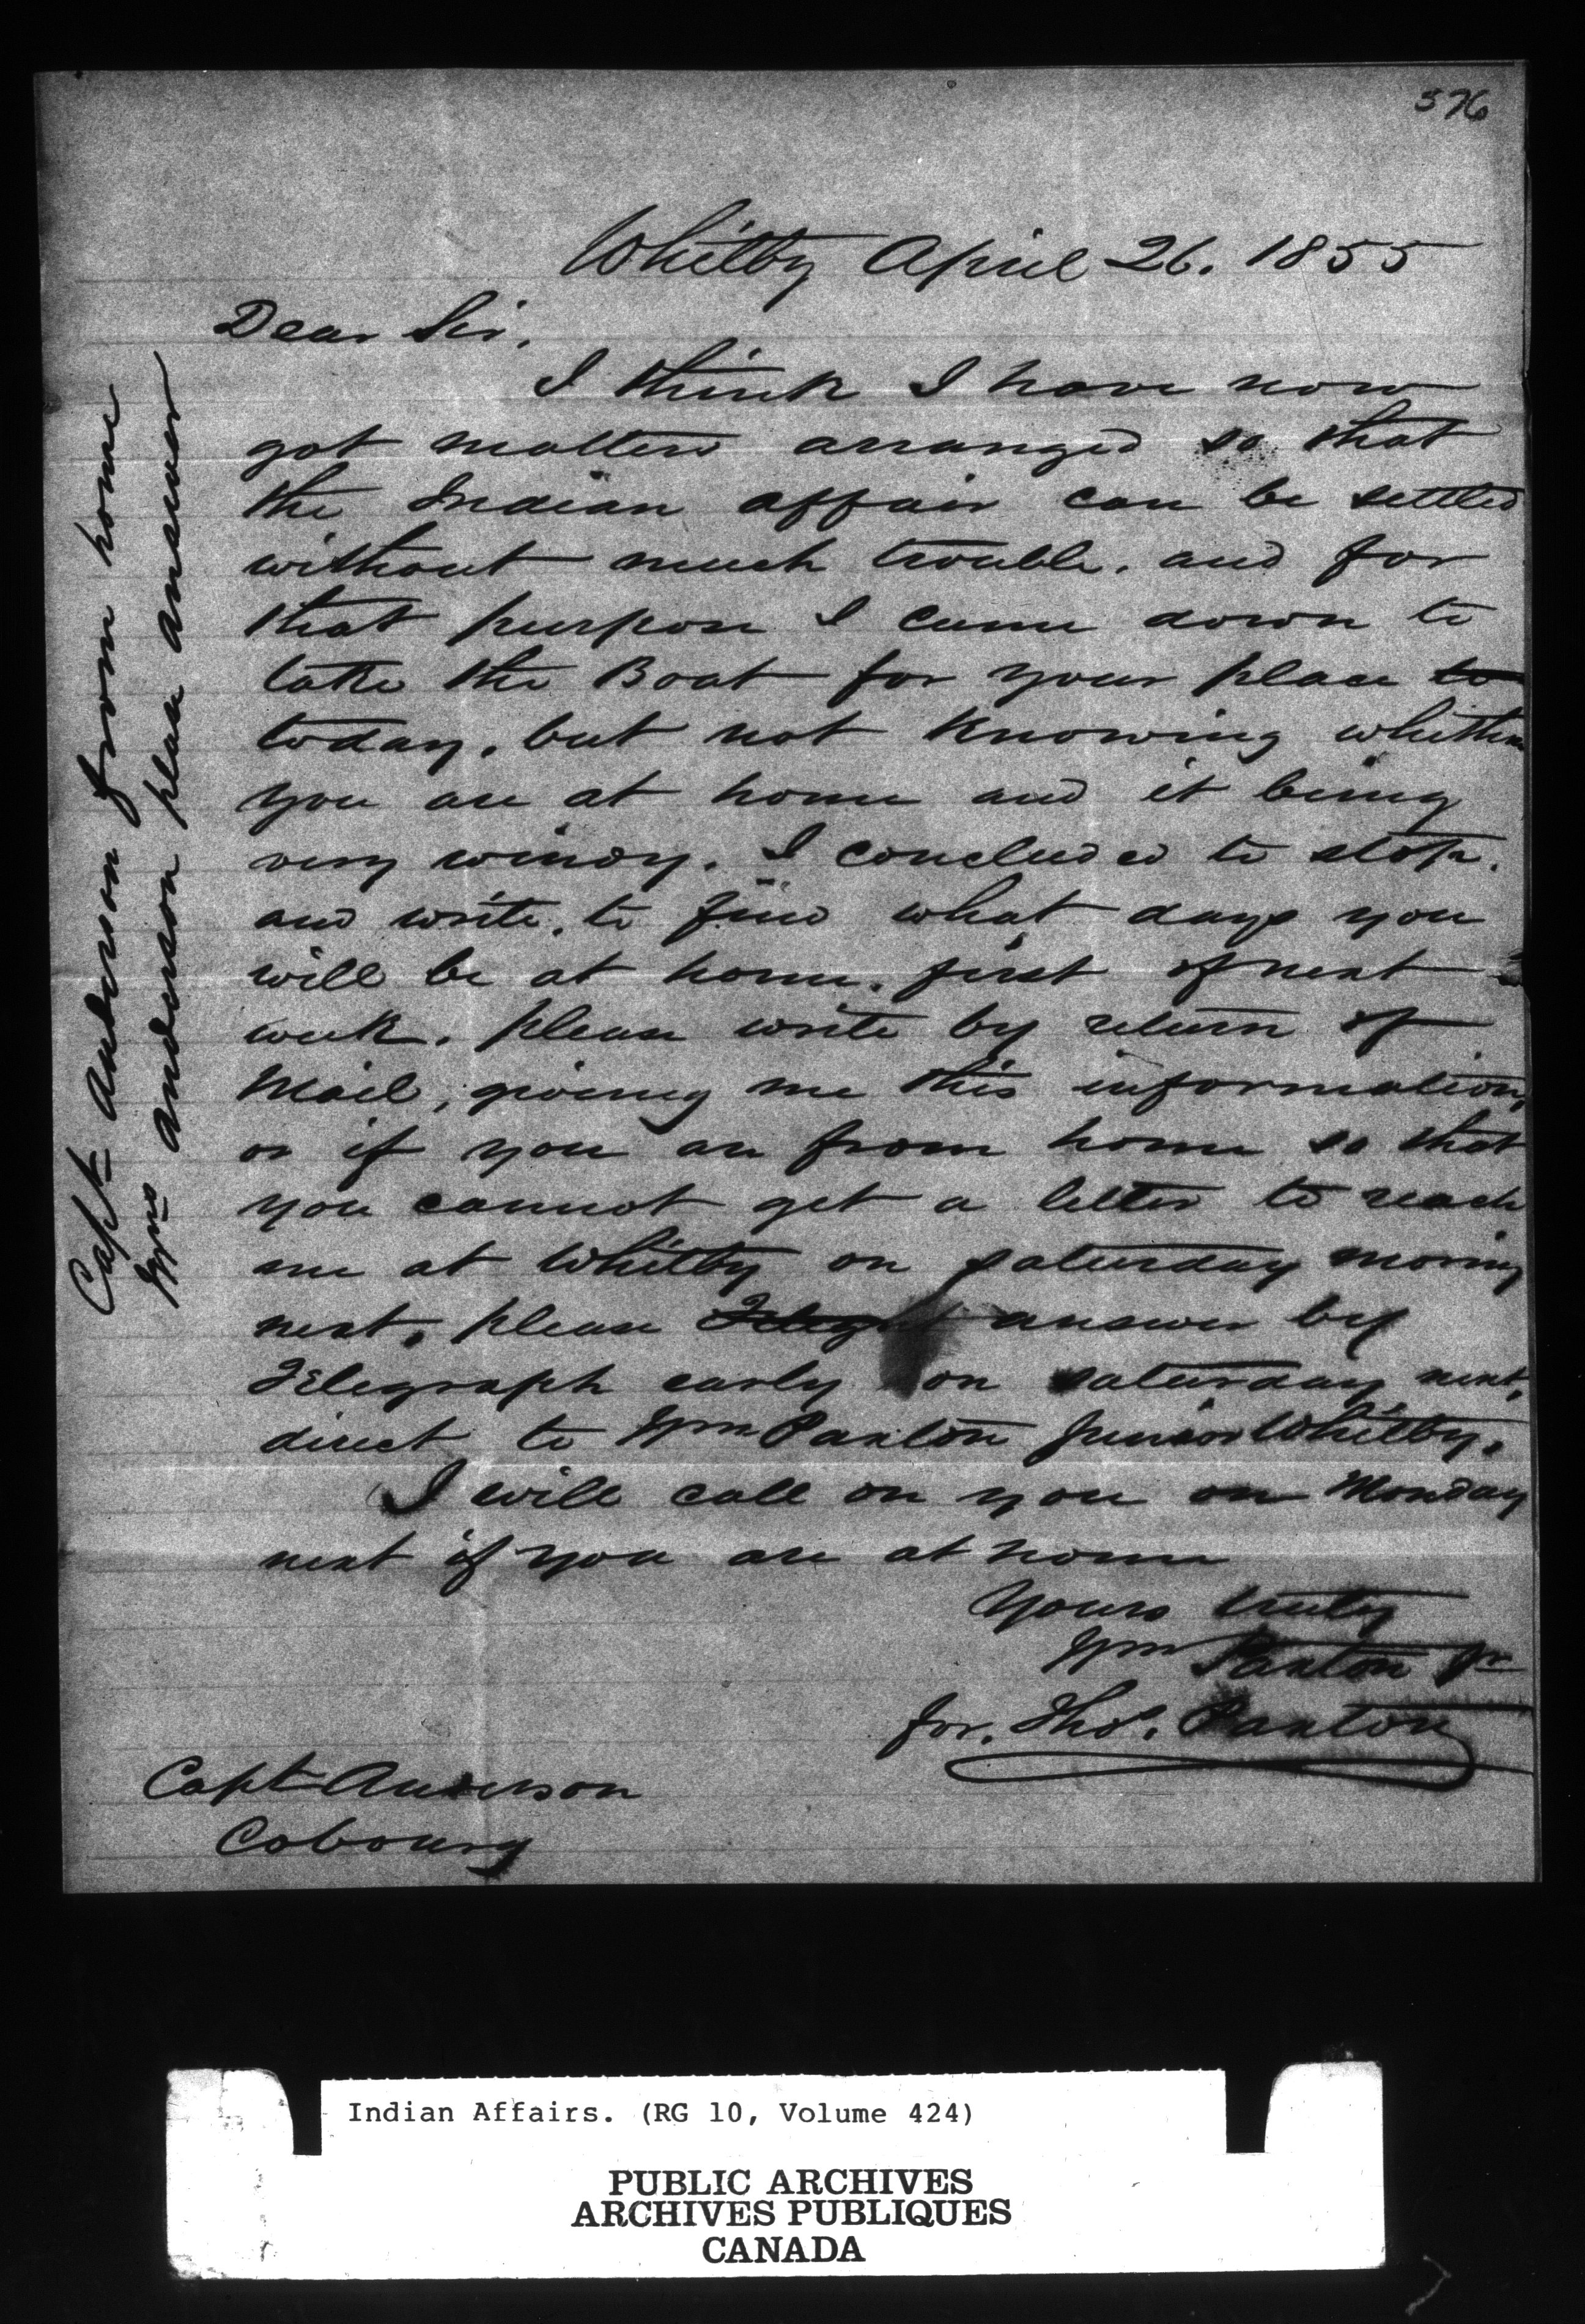 576
Whitby April 26. 1855
Dear Sir.
I think I have now
got matters arranged so that
the Indian affair can be settled
without much trouble. and for
that purpose I came down to
take the Boat for your place to
today. but not Knowing whether
you are at home and it being
very windy. I concluded to stop.
and write. to find what days you
will be at home. first of next
week. please write by return of
Mail, giving me this information,
or if you are from home so that
you cannot get a letter to reach
me at Whitby on Saturday morning
next, please Telegh answer by
Telegraph early on Saturday next.
direct to Wm Paxton Junior Whitby.
I will call on you on Monday
next if you are at home
Yours truly
Wm Paxton Jr
for. Thos. Paxton
Capt Anderson
Cobourg
Capt Anderson from home
Anderson please answer
Indian Affairs. (RG 10, Volume 424)
PUBLIC ARCHIVES
ARCHIVES PUBLIQUES
CANADA